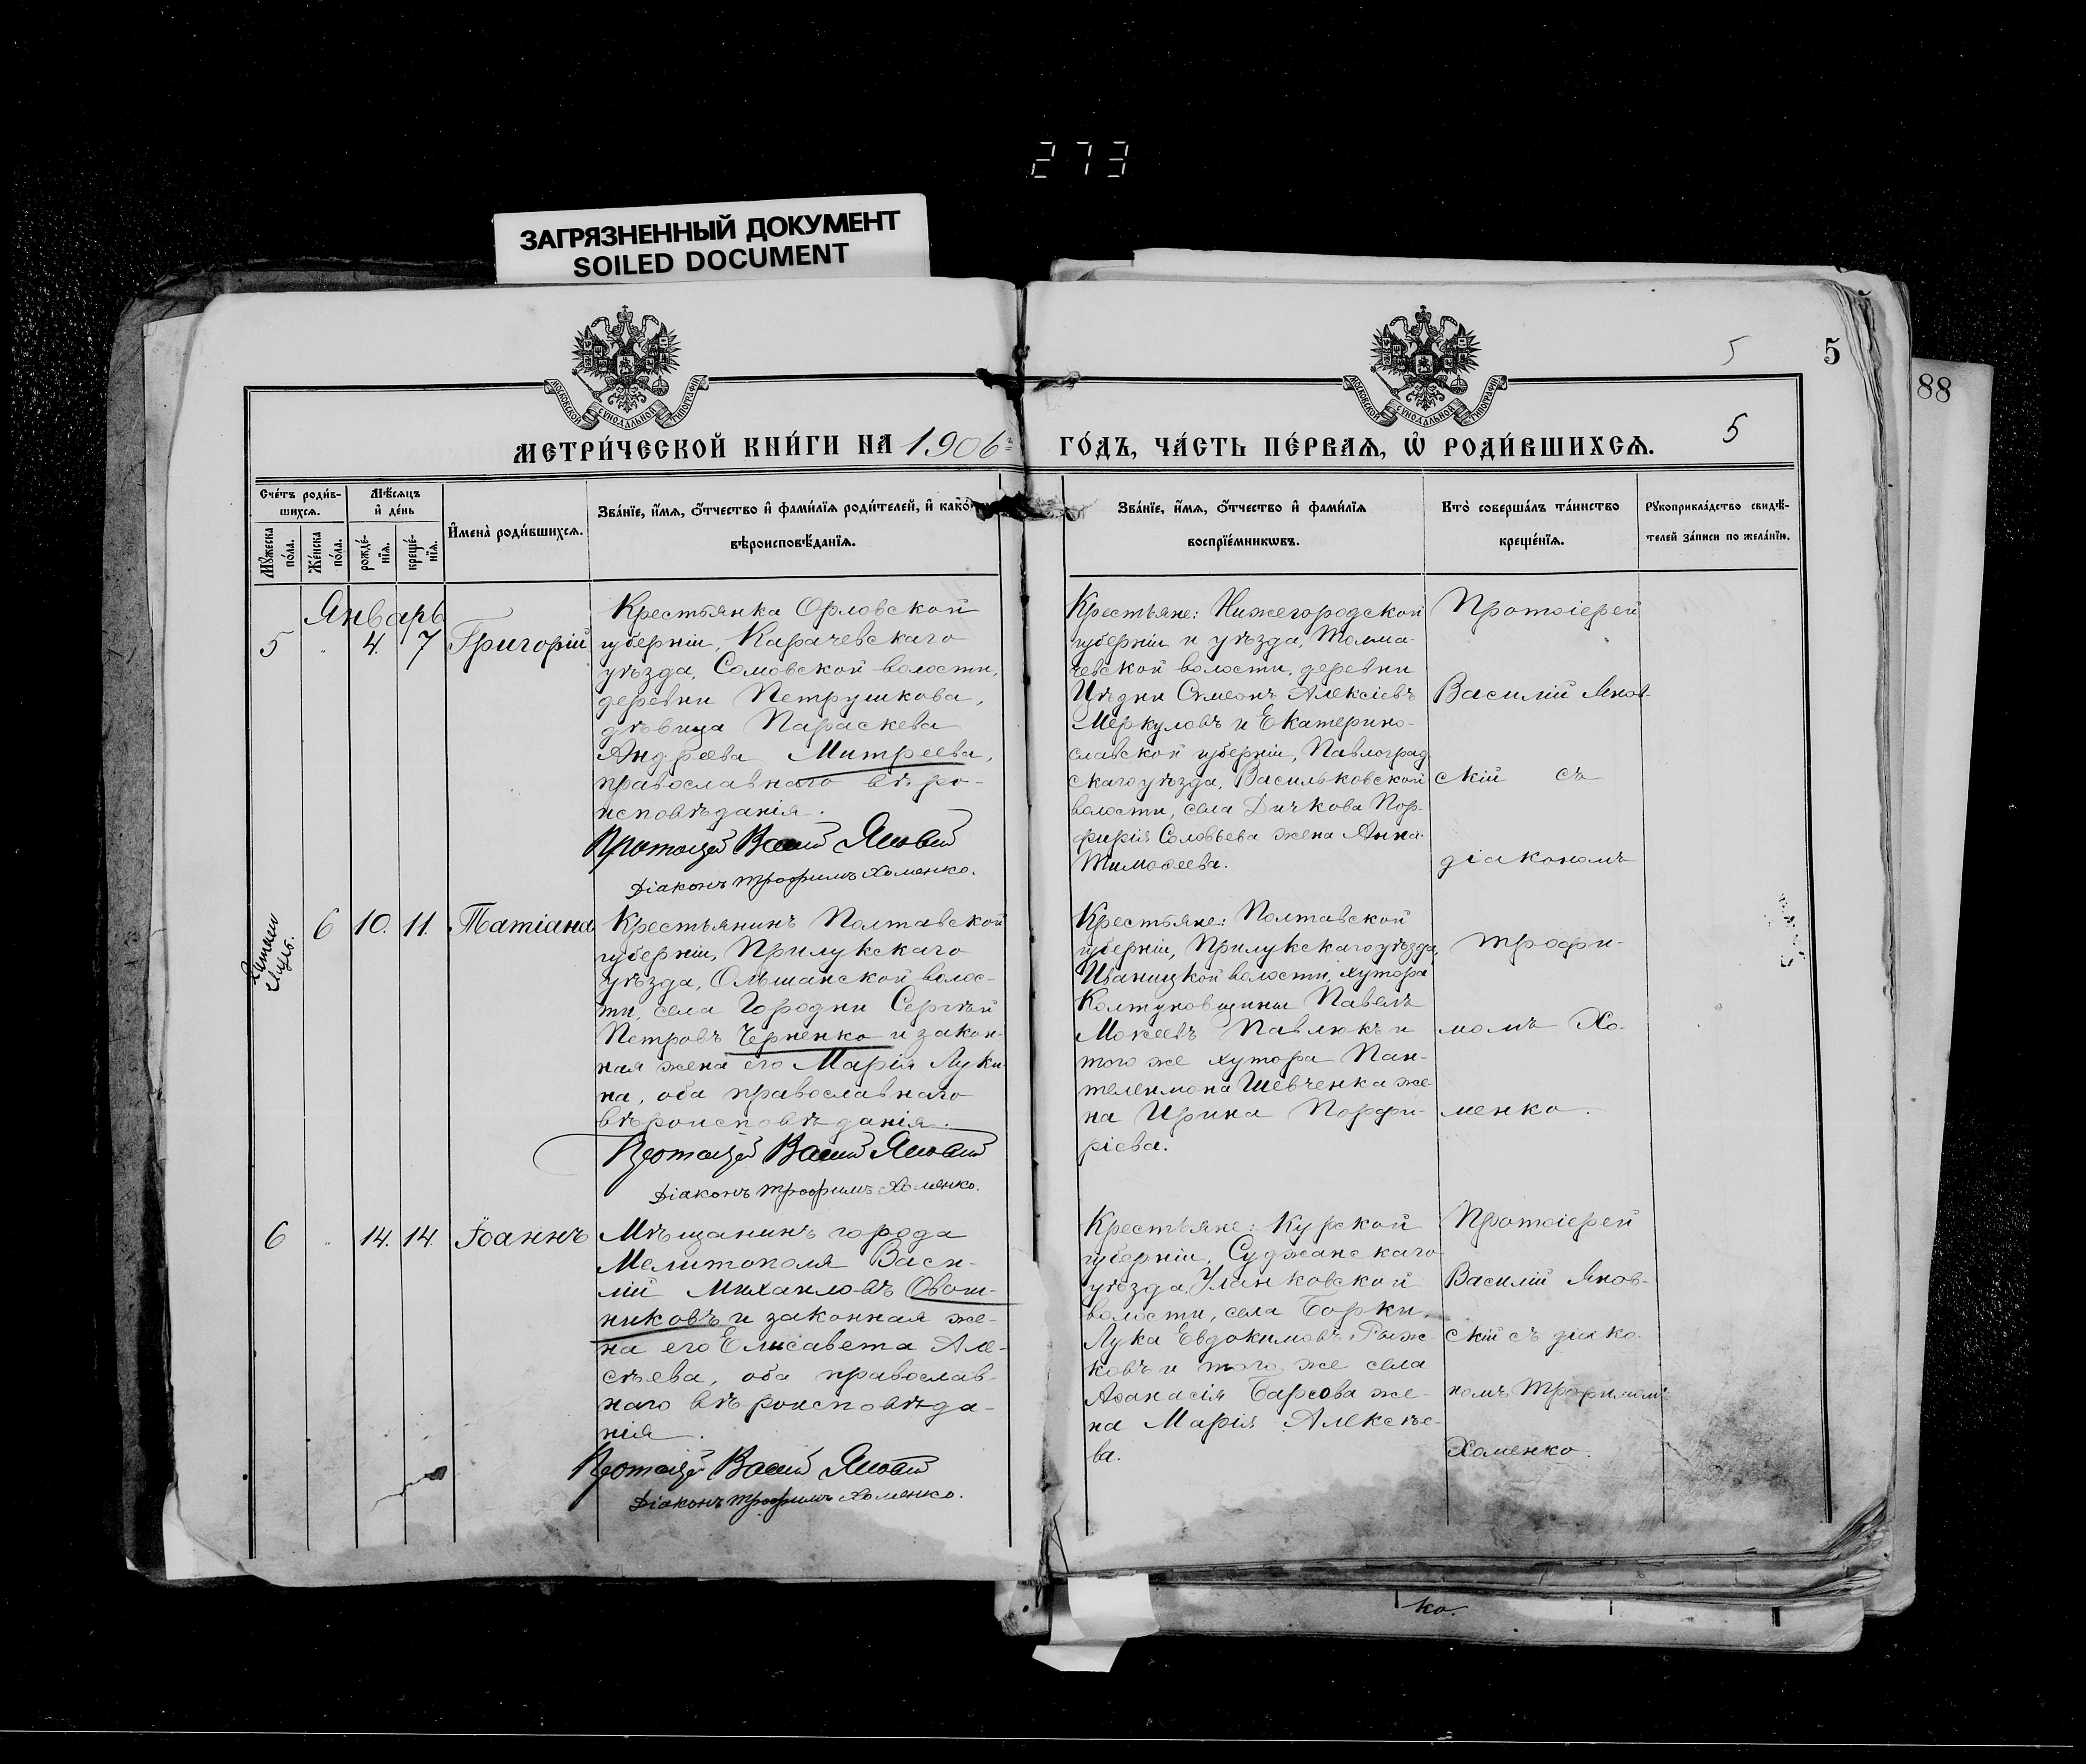 273
ЗАГРЯЗНЕННЫЙ ДОКУМЕНТ
SOILED DOCUMENT
5
5
88
МОСКОВСКОЙ СѴНОДАЛЬНОЙ ТИПОГРАФІИ
МОСКОВСКОЙ СѴНОДАЛЬНОЙ ТИПОГРАФІИ
МЕТРИ́ЧЕСКОЙ КНИ́ГИ НА 1906
ГО́ДЪ, ЧА́СТЬ ПЕ́РВАѦ, Ѡ҆ РОДИ́ВШИХСѦ.
5
Сче́тъ роди́в-
шихсѧ.
Мꙋ́жеска
по́ла.
Же́нска
по́ла.
Мѣ́сѧцъ
и҆ де́нь
рожде́-
нїѧ.
креще́-
нїѧ.
И҆мена̀ роди́вшихсѧ.
Зва́нїе, и҆́мѧ, ѻ҆́тчество и҆ фами́лїѧ роди́телей, и҆ како́
вѣроисповѣ́данїѧ.
Зва́нїе, и҆́мѧ, ѻ҆́тчество и҆ фами́лїѧ
воспрїе́мникѡвъ.
Кто̀ соверша́лъ та́инство
креще́нїѧ.
Рꙋкоприкла́дство свидѣ́-
телей за́писи по жела́нїю.
Январь
5 " 4. 7 Григорій
Крестьянка Орловской
губерніи, Карачевскаго
уѣзда, Сомовской волости,
деревни Петрушкова,
дѣвица Параскева
Андреева Митреева,
православнаго вѣро-
исповѣданія.
Протоіерей Василій Яновскій
Діаконъ Трофимъ Хоменко.
Крестьяне: Нижегородской
губерніи и уѣзда, Толма-
чевской волости, деревни
Цѣдни Симеонъ Алексіевъ
Меркуловъ и Екатерино-
славской губерніи, Павлоград
скаго уѣзда, Васильковской
волости, села Дичкова Пор-
фирія Соловьева жена Анна
Тимоѳеева.
Протоіерей
Василій Янов-
скій съ
діакономъ
6 10. 11. Татіана
Крестьянинъ Полтавской
губерніи, Прилукскаго
уѣзда, Ольшанской волос-
ти, села Городни Сергѣй
Петровъ Черненко и закон-
ная жена его Марія Луки-
на, оба православнаго
вѣроисповѣданія.
Протоіерей Василій Яновскій
Діаконъ Трофимъ Хоменко.
Крестьяне: Полтавской
губерніи, Прилукскаго уѣзда,
Иваницкой волости, хутора
Колтуновщины Павелъ
Мокеевъ Павлюкъ и
того же хутора Пан-
телеимона Шевченка же-
на Ирина Порфи-
ріева.
Трофи-
момъ Хо-
менко.
6 " 14. 14. Іоаннъ
Мѣщанинъ города
Мелитополя Васи-
лій Михаиловъ Овош-
никовъ и законная же-
на его Елисавета Але-
сѣева, оба православ-
наго вѣроисповѣда-
нія.
Протоіерей Василій Яновскій
Діаконъ Трофимъ Хоменко.
Крестьяне: Курской
губерніи, Суджанскаго
уѣзда, Уланковской
волости, села Борки,
Лука Евдокимовъ Рыж-
ковъ и того же села
Аѳанасія Барсова же-
на Марія Алексѣе-
ва.
Протоіерей
Василій Янов-
скій съ діако-
номъ Трофимомъ
Хоменко.
ко.